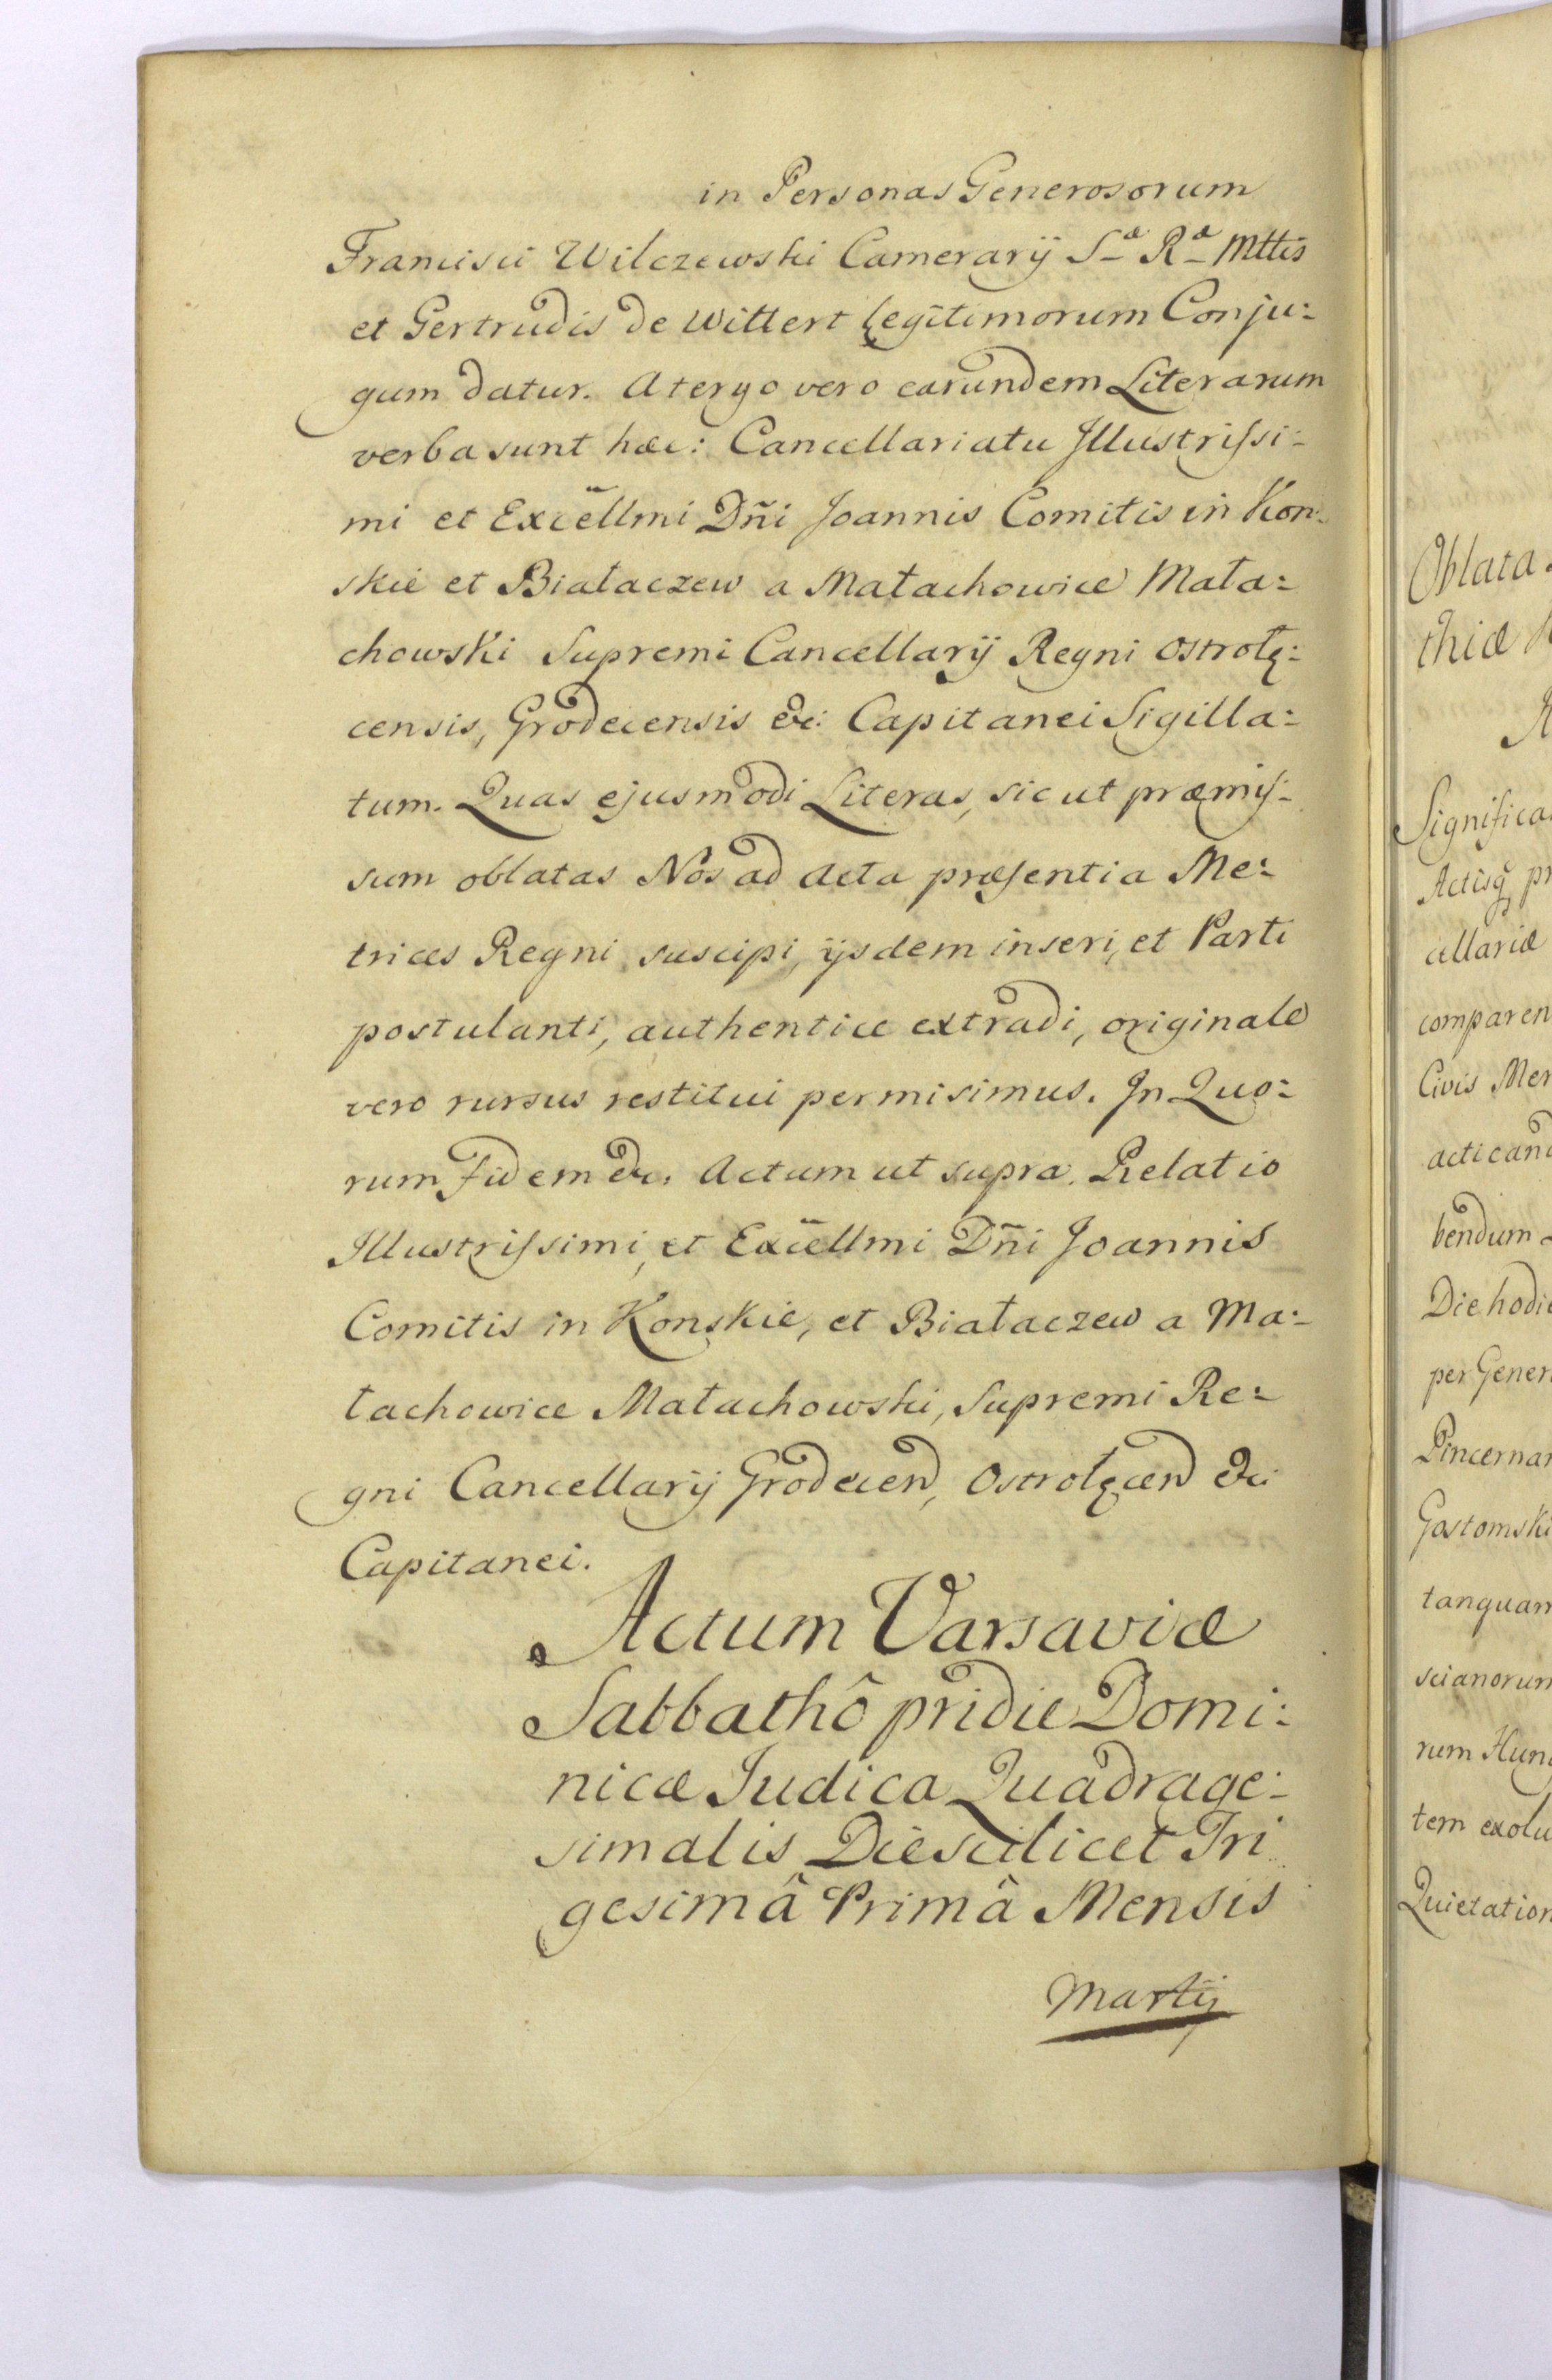 in Personas Generosorum
Francisci Wilczewski Camerarij S^æ R^æ Mttis
et Gertrudis de Wittert legitimorum Conju:
gum datur. A tergo vero earundem Literarum
verba sunt hæc: Cancellariatu Jllustrissi:
mi et Excellmi Dñi Joannis Comitis in Kon:
skie et Białaczew a Małachowice Mała:
chowski Supremi Cancellarij Regni Ostrołę:
censis, Grodecensis &c: Capitanei Sigilla:
tum. Quas ejusmodi Literas, sic ut præmis:
sum oblatas Nos ad Acta præsentia Me:
trices Regni suscipi, ijsdem inseri, et Parti
postulanti, authentice extradi, originale
vero rursus restitui permisimus. Jn Quo:
rum Fidem &c. Actum ut supra. Relatio
Jllustrissimi, et Excellmi Dñi Joannis
Comitis in Konskie, et Białaczew a Ma:
łachowice Małachowski, Supremi Re:
gni Cancellarij Grodecen, Ostrołęcen &c:
Capitanei.
Actum Varsaviæ
Sabbathô pridie Domi:
nicæ Judica Quadrage:
simalis Die scilicet Tri
gesimâ Primâ Mensis
Martij
Oblata
thiæ
Significa
Actisq pr
cellariæ
comparen
Civis Mer
acticand
bendum
Die hodie
per Gener
Pincernar
Gostomski
tanquam
scianorum
rum Hung
tem exolu
Quietation